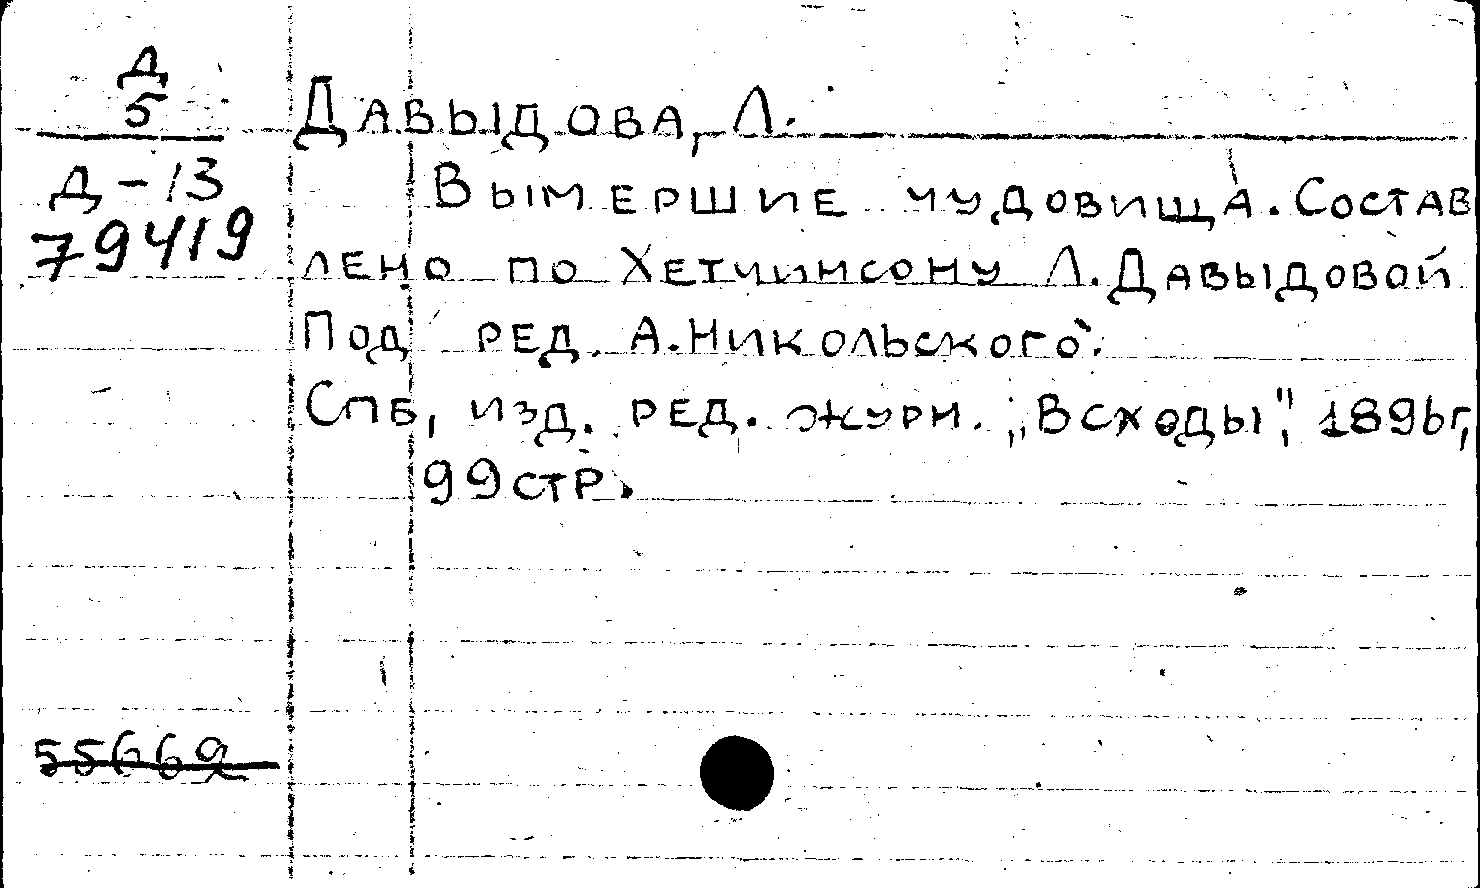 Д
5
Д-13
79419
Давыдова, Л.
Вымершие чудовища. Состав
лено по Хетчинсону Л. Давыдовой
Под ред. А. Никольского.
Спб, изд. ред. журн. „Всходы", 1896г,
99 стр.
55662